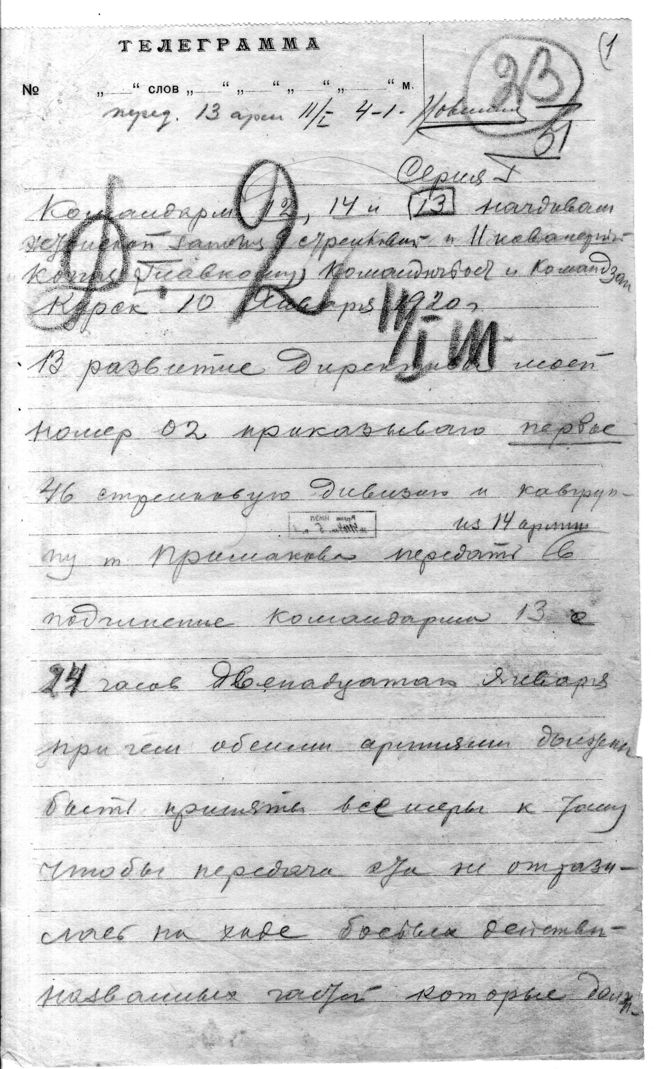 (1
ТЕЛЕГРАММА
23
№ „ “ слов „ “ „ “ „ “ „ “ м.
перед. 13 арм 11/I 4-1.
51
Серия I
Командарм 12, 14 и 13 начдивам
Эстонской Латыш стрелковой и 11 кавалерий
копия Главкому Командюгвост и Командзап
Курск 10 Января 1920 г
Ф. 2
11/I
В развитие Директивы моей
номер 02 приказываю первое
46 стрелковую дивизию и кавгруп-
из 14 армии
пу т Примакова передать в
подчинение командарма 13 с
24 часов двенадцатого Января
при чем обеими армиями должны
быть приняты все меры к тому
чтобы передача эта не отрази-
лась на ходе боевых действи-
названных частей которые долж-